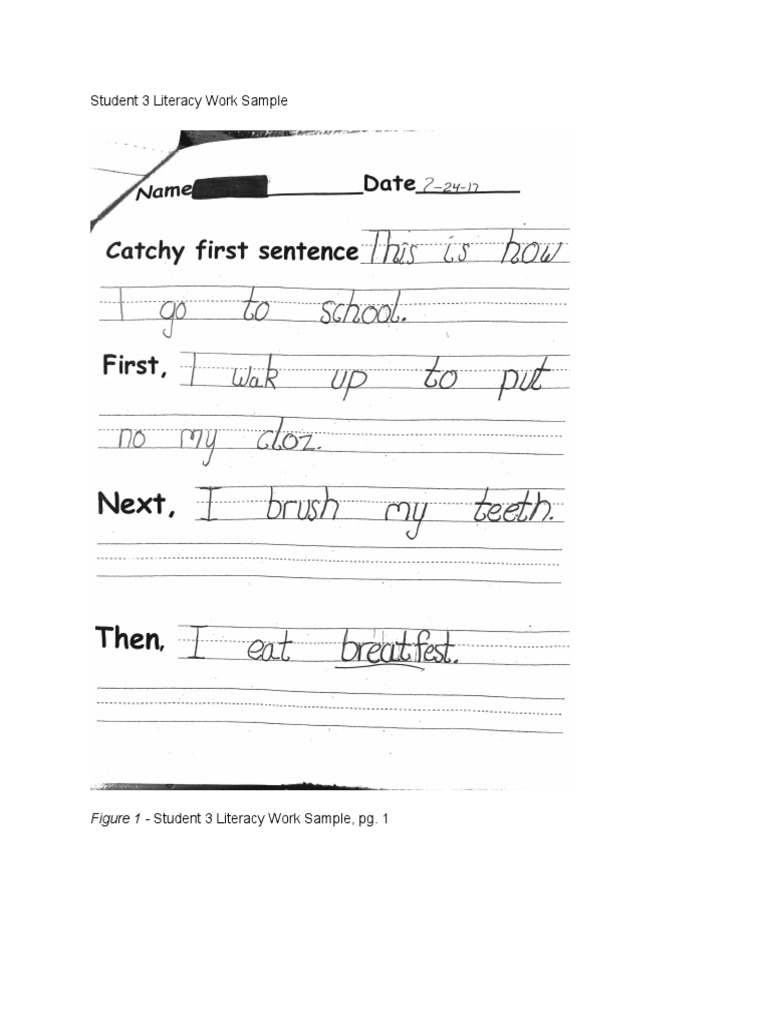 Student 3 Literacy Work Sample
Name Date 2-24-17
Catchy first sentence This is how
I go to school.
First, I wak up to put
no my cloz.
Next, I brush my teeth.
Then, I eat breatfest.
Figure 1 - Student 3 Literacy Work Sample, pg. 1